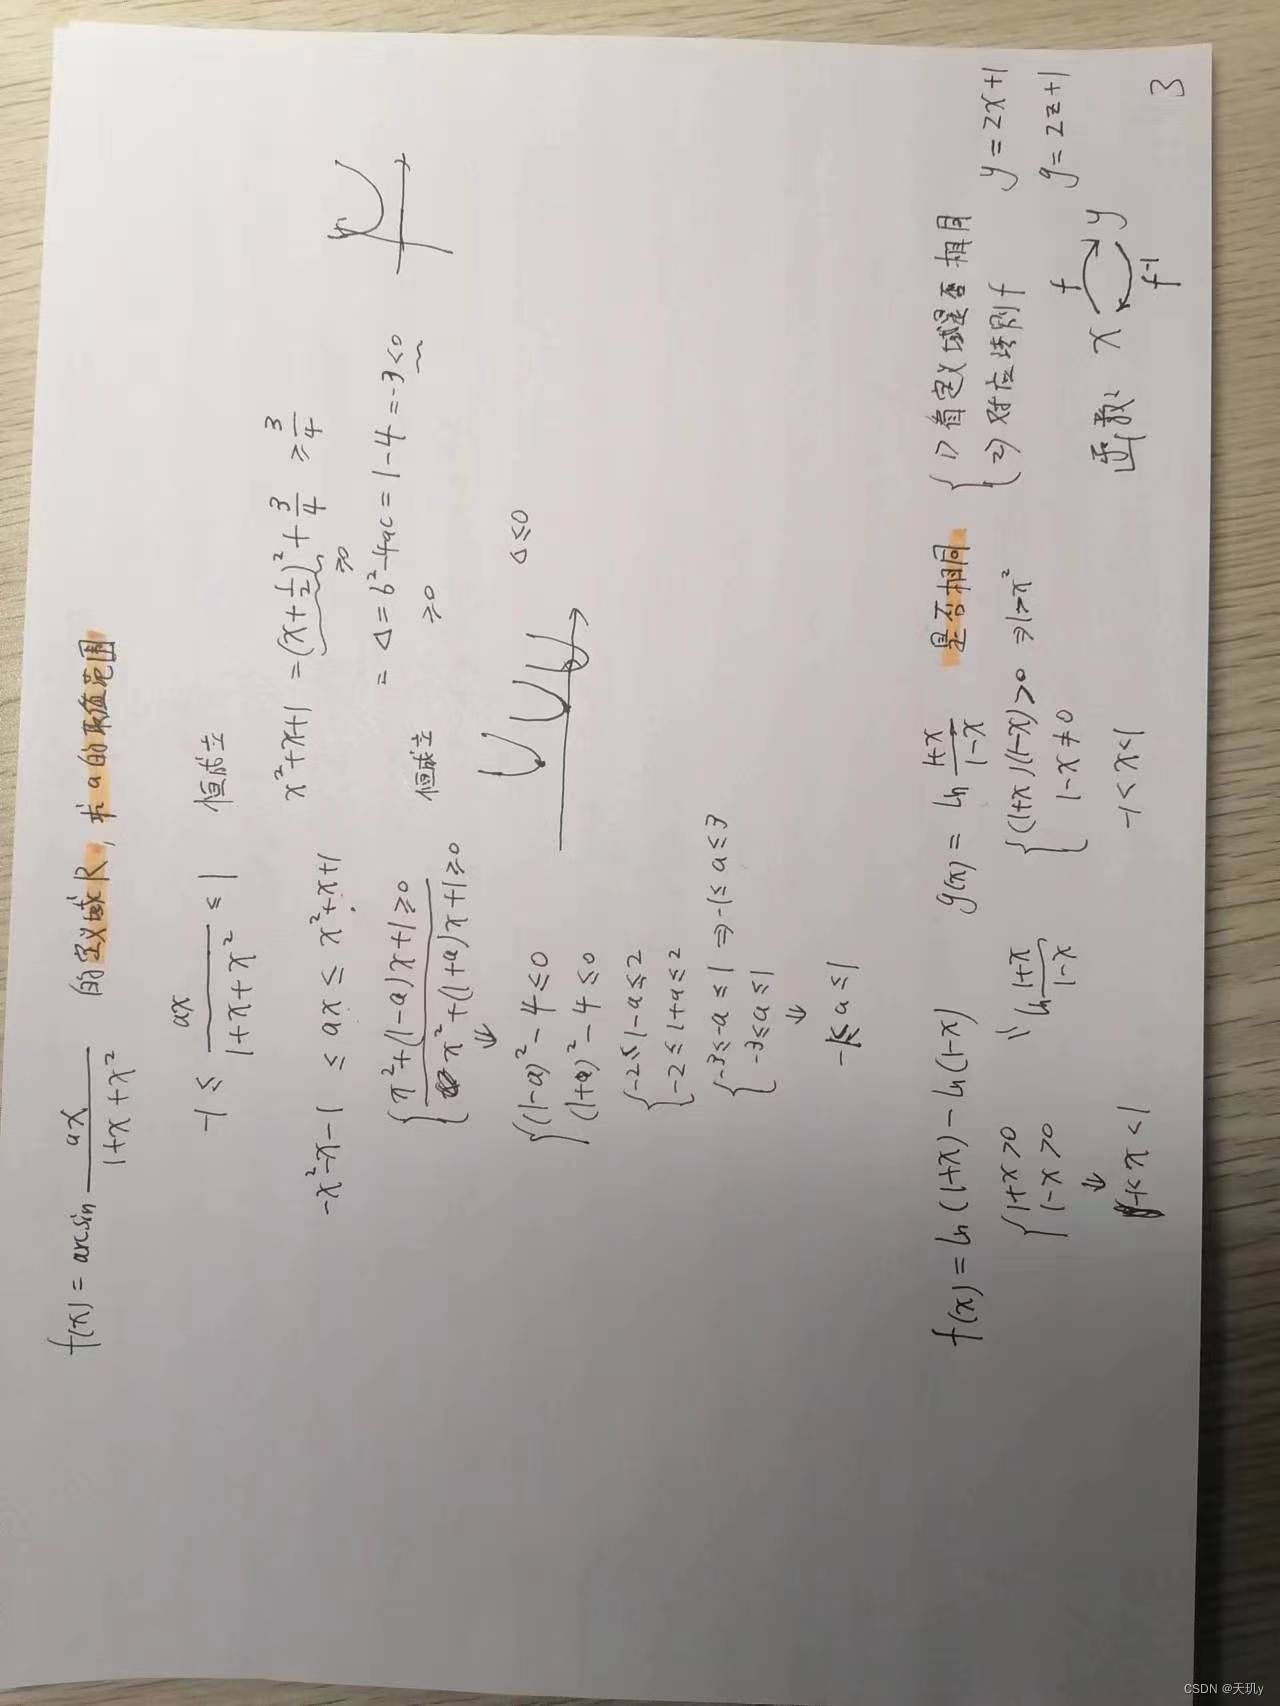 f(x) = arcsin ax/(1+x+x²) 的定义域R，求a的取值范围
-1 ≤ ax/(1+x+x²) ≤ 1 恒成立
-x²-x-1 ≤ ax ≤ x²+x+1
x²+x+1 = (x+1/2)² + 3/4 ≥ 3/4
≥0
= Δ = b²-4ac = 1-4 = -3 <0
{ x²+(1-a)x+1 ≥ 0
x²+(1+a)x+1 ≥ 0 恒成立 ≥0
⇓
{ (1-a)²-4 ≤ 0
(1+a)²-4 ≤ 0
Δ ≤ 0
{ -2 ≤ 1-a ≤ 2
-2 ≤ 1+a ≤ 2
{ -3 ≤ -a ≤ 1 ⇒ -1 ≤ a ≤ 3
-3 ≤ a ≤ 1
⇓
-1 ≤ a ≤ 1
f(x) = ln(1+x) - ln(1-x) g(x) = ln (1+x)/(1-x) 是否相同
{ 1+x>0
1-x>0
⇓
-1<x<1
=
ln (1+x)/(1-x)
{ (1+x)(1-x)>0 ⇒ 1>x²
1-x≠0
-1<x<1
{ 1) 看定义域是否相同
2) 对应法则f
y = 2x+1
y = 2z+1
函数: x f y
f⁻¹
3
CSDN @天玑y